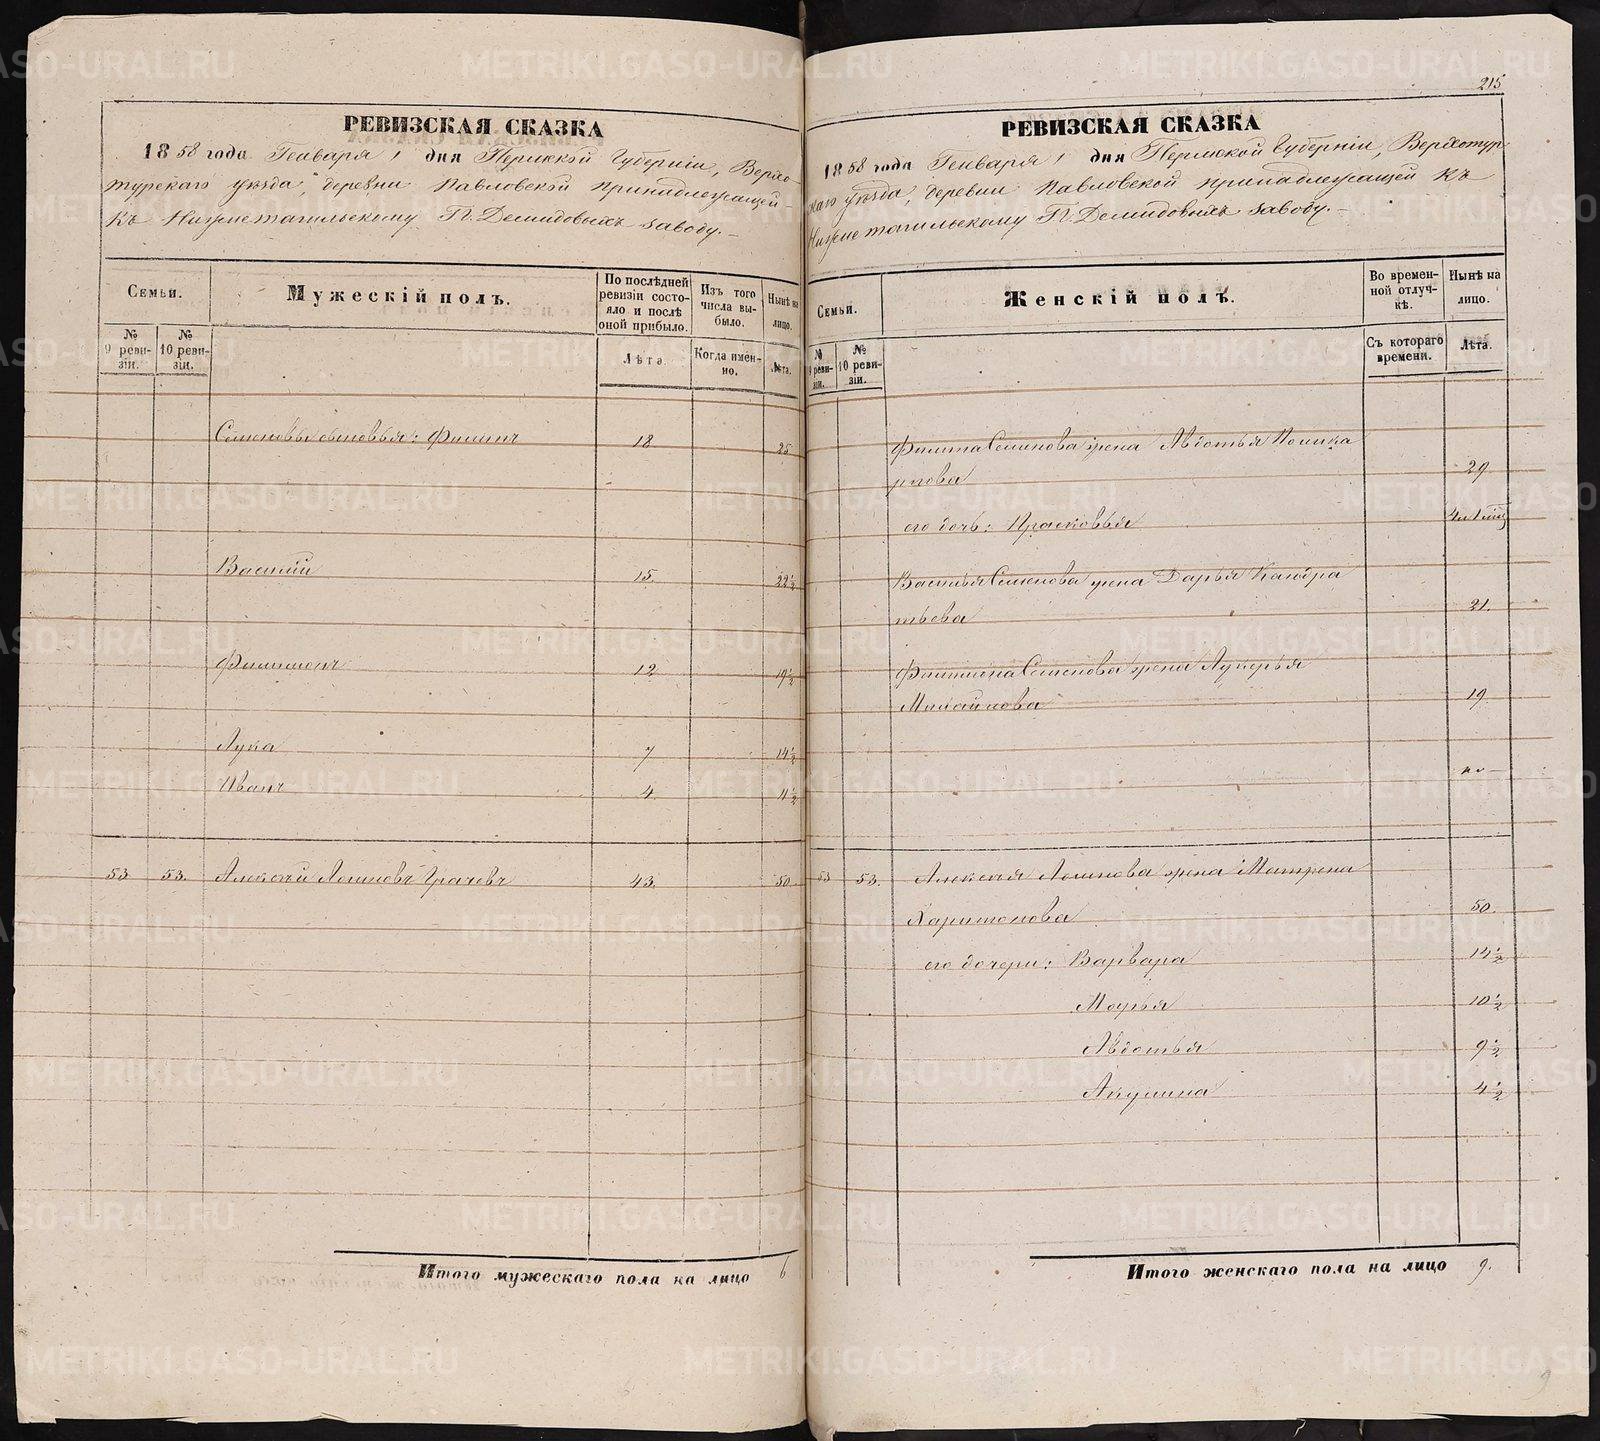 215
РЕВИЗСКАЯ СКАЗКА
1858 года Генваря 1 дня Пермской Губерніи, Верхо-
турскаго уѣзда, деревни Павловской принадлежащей
къ Нижнетагильскому Гг. Демидовыхъ заводу.
Семьи.
Мужескій полъ.
По послѣдней ревизіи состояло и послѣ оной прибыло.
Изъ того числа выбыло.
Нынѣ на лицо.
№ 9 ревизіи.
№ 10 ревизіи.
Лѣта.
Когда именно.
Лѣта.
Семеновы сыновья: Филипъ 18 25
Василій 15. 22½
Филимонъ 12 19½
Лука 7 14½
Иванъ 4 11½
53 53. Алексѣй Логиновъ Грачевъ 43. 50
Итого мужескаго пола на лицо 6
РЕВИЗСКАЯ СКАЗКА
1858 года Генваря 1 дня Пермской Губерніи, Верхотур
скаго уѣзда, деревни Павловской принадлежащей къ
Нижнетагильскому Гг. Демидовыхъ заводу.
Семьи.
Женскій полъ.
Во временной отлучкѣ.
Нынѣ на лицо.
№ 9 ревизіи.
№ 10 ревизіи.
Съ котораго времени.
Лѣта.
Филипа Семенова жена Авдотья Полика
рпова 29
его дочь: Прасковья
Василья Семенова жена Дарья Кандра
тьева 21.
Филимона Семенова жена Лукерья
Михайлова 19
53 53. Алексея Логинова жена Матрена
Харитонова 50.
его дочери: Варвара 14½
Марья 10½
Авдотья 9½
Акулина 4½
Итого женскаго пола на лицо 9.
METRIKI.GASO-URAL.RU